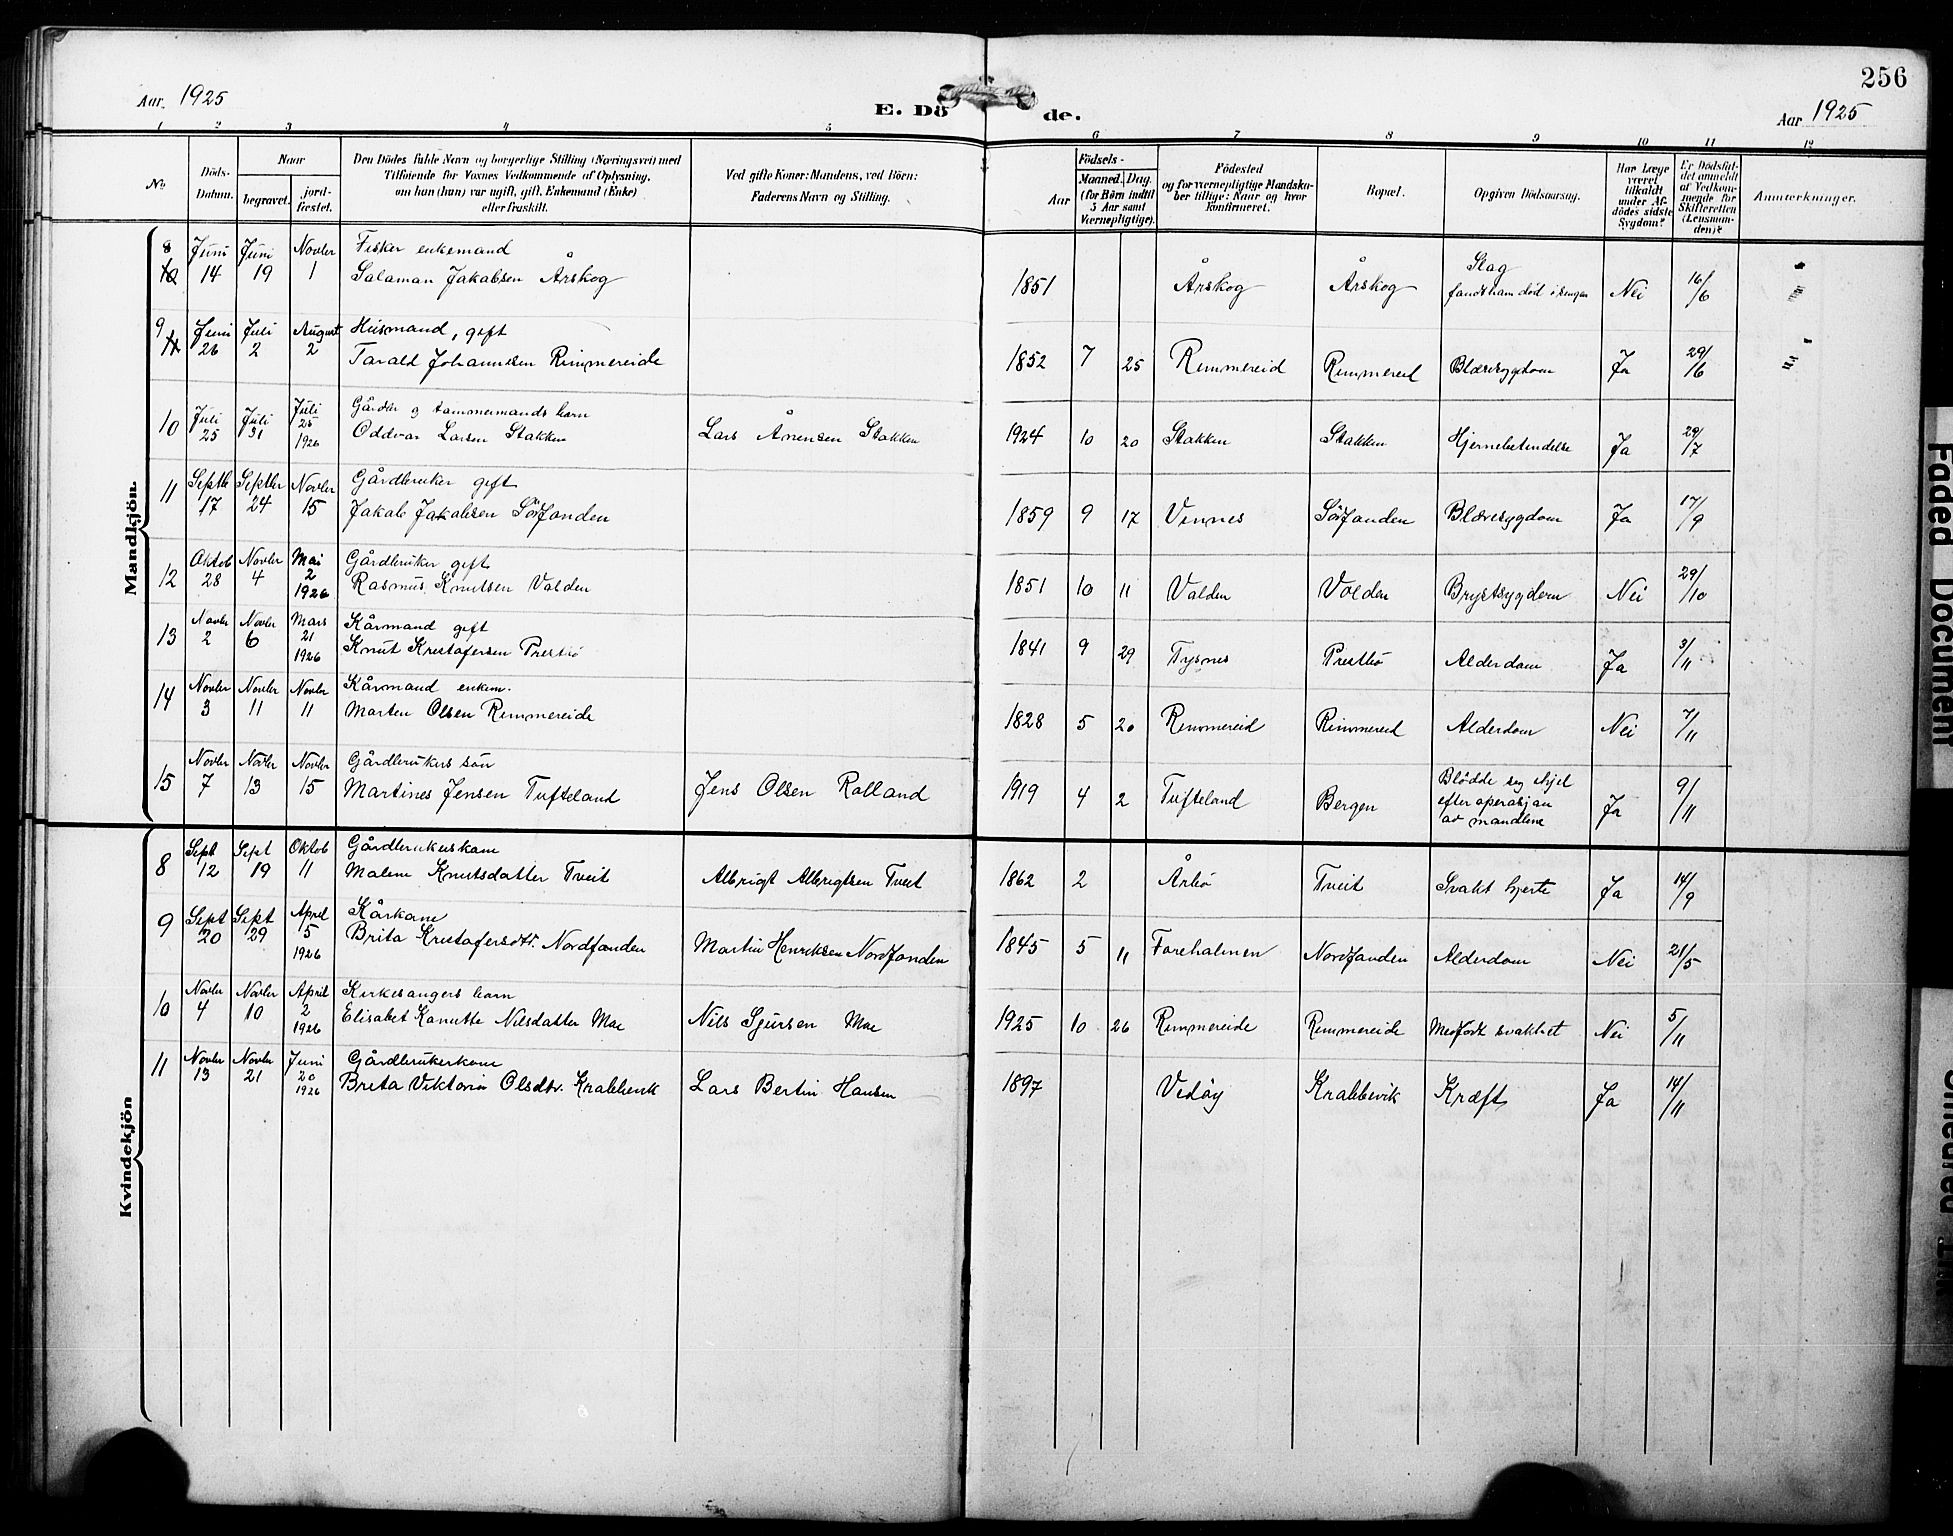 256
Aar 1925
E. Döde.
Aar 1925
1 2 3 4 5 6 7 8 9 10 11 12
No
Döds-Datum.
Naar
begravet.
jord-fæstet.
Den Dödes fulde Navn og borgerlige Stilling (Næringsvei) med
Tilföiende for Voxnes Vedkommende af Oplysning,
om han (hun) var ugift, gift, Enkemand (Enke)
eller fraskilt.
Ved gifte Koner: Mandens, ved Börn:
Faderens Navn og Stilling.
Födsels-
Aar
Maaned. Dag.
(for Börn indtil
5 Aar samt
Værnepligtige).
Födested
og for værnepligtige Mandska-
ber tillige: Naar og hvor
konfirmeret.
Bopæl.
Opgiven Dödsaarsag.
Har Læge
været
tilkaldt
under Af-
dödes sidste
Sygdom?
Er Dödsfal-
det anmeldt
af Vedkom-
mende for
Skifteretten
(Lensman-
den)?
Anmærkninger.
Mandkjön.
8 Juni 14 Juni 19 Novbr 1 Fisker enkemand
Salaman Jakabsen Årskog 1851 Årskog Årskog Slag
fandt ham död i sengen Nei 16/6
9 Juni 26 Juli 2 August 2 Husmand, gift
Tarald Johannssen Rimmereide 1852 7 25 Rimmereid Rimmereid Blæresygdom Ja 29/6
10 Juli 25 Juli 31 Juli 25 1926 Gårdbr og tømmermands barn
Oddvar Larsen Stakken Lars Ånensen Stakken 1924 10 20 Stakken Stakken Hjernebetendelse Ja 29/7
11 Septbr 17 Septbr 24 Novbr 15 Gårdbruker gift
Jakab Jakabsen Sörfonden 1859 9 17 Vinnes Sörfonden Blæresygdom Ja 17/9
12 Oktob 28 Novbr 4 Mai 2 1926 Gårdbruker gift
Rasmus Knutsen Valden 1851 10 11 Valden Volden Brystsygdom Nei 29/10
13 Novbr 2 Novbr 6 Mars 21 1926 Kårmand gift
Knut Kristafersen Prestbö 1841 9 29 Tysnes Prestbö Alderdom Ja 3/11
14 Novbr 3 Novbr 11 Novbr 11 Kårmand enkem.
Marten Olsen Rimmereide 1828 5 20 Rimmereid Rimmereid Alderdom Nei 7/11
15 Novbr 7 Novbr 13 Novbr 15 Gårdbrukers sön
Martines Jensen Tufteland Jens Olsen Rolland 1919 4 2 Tufteland Bergen Blödde seg ihjel
efter operasjon
av mandlene Ja 9/11
Kvindekjön
8 Sept 12 Sept 19 Oktob 11 Gårdbrukerskone
Malene Knutsdatter Tveit Albrigt Albrigtsen Tveit 1862 2 Årbö Tveit Svakt hjerte Ja 14/9
9 Sept 20 Sept 29 April 5 1926 Kårkone
Brita Kristafersdtr. Nordfonden Martin Henriksen Nordfonden 1845 5 11 Foreholmen Nordfonden Alderdom Nei 21/5
10 Novbr 4 Novbr 10 April 2 1926 Kirkesangers barn
Elisabet Kanutte Nilsdatter Moe Nils Sjursen Moe 1925 10 26 Rimmereide Rimmereide Medfödt svakhet Nei 5/11
11 Novbr 13 Novbr 21 Juni 20 1926 Gårdbrukerkone
Brita Viktoria Olsdtr. Krabbevik Lars Bertin Hansen 1897 Vedöy Krabbevik Kræft Ja 14/11
Faded Document